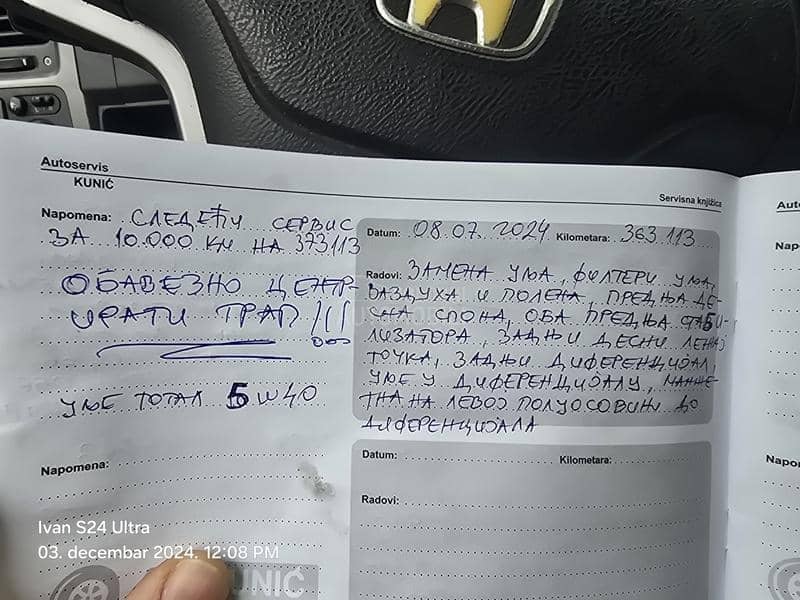 Autoservis
KUNIĆ
Servisna knjižica
Napomena: СЛЕДЕЋИ СЕРВИС
ЗА 10.000 КМ НА 373113
ОБАВЕЗНО ЦЕНТР-
ИРАТИ ТРАП !!!
УЉЕ ТОТАЛ 5W40
Datum: 08.07.2024 Kilometara: 363.113
Radovi: ЗАМЕНА УЉА, ФИЛТЕРИ УЉА,
ВАЗДУХА И ПОЛЕНА, ПРЕДЊА ДЕ-
СНА СПОНА, ОБА ПРЕДЊА СТАБИ-
ЛИЗАТОРА, ЗАДЊИ ДЕСНИ ЛЕЖАЈ
ТОЧКА, ЗАДЊИ ДИФЕРЕНЦИЈАЛ,
УЉЕ У ДИФЕРЕНЦИЈАЛУ, МАНЖЕ-
ТНА НА ЛЕВОЈ ПОЛУОСОВИНИ ДО
ДИФЕРЕНЦИЈАЛА
Napomena:
Datum: Kilometara:
Radovi:
KUNIĆ
Ivan S24 Ultra
03. decembar 2024. 12:08 PM
Aut
Nap
Napo